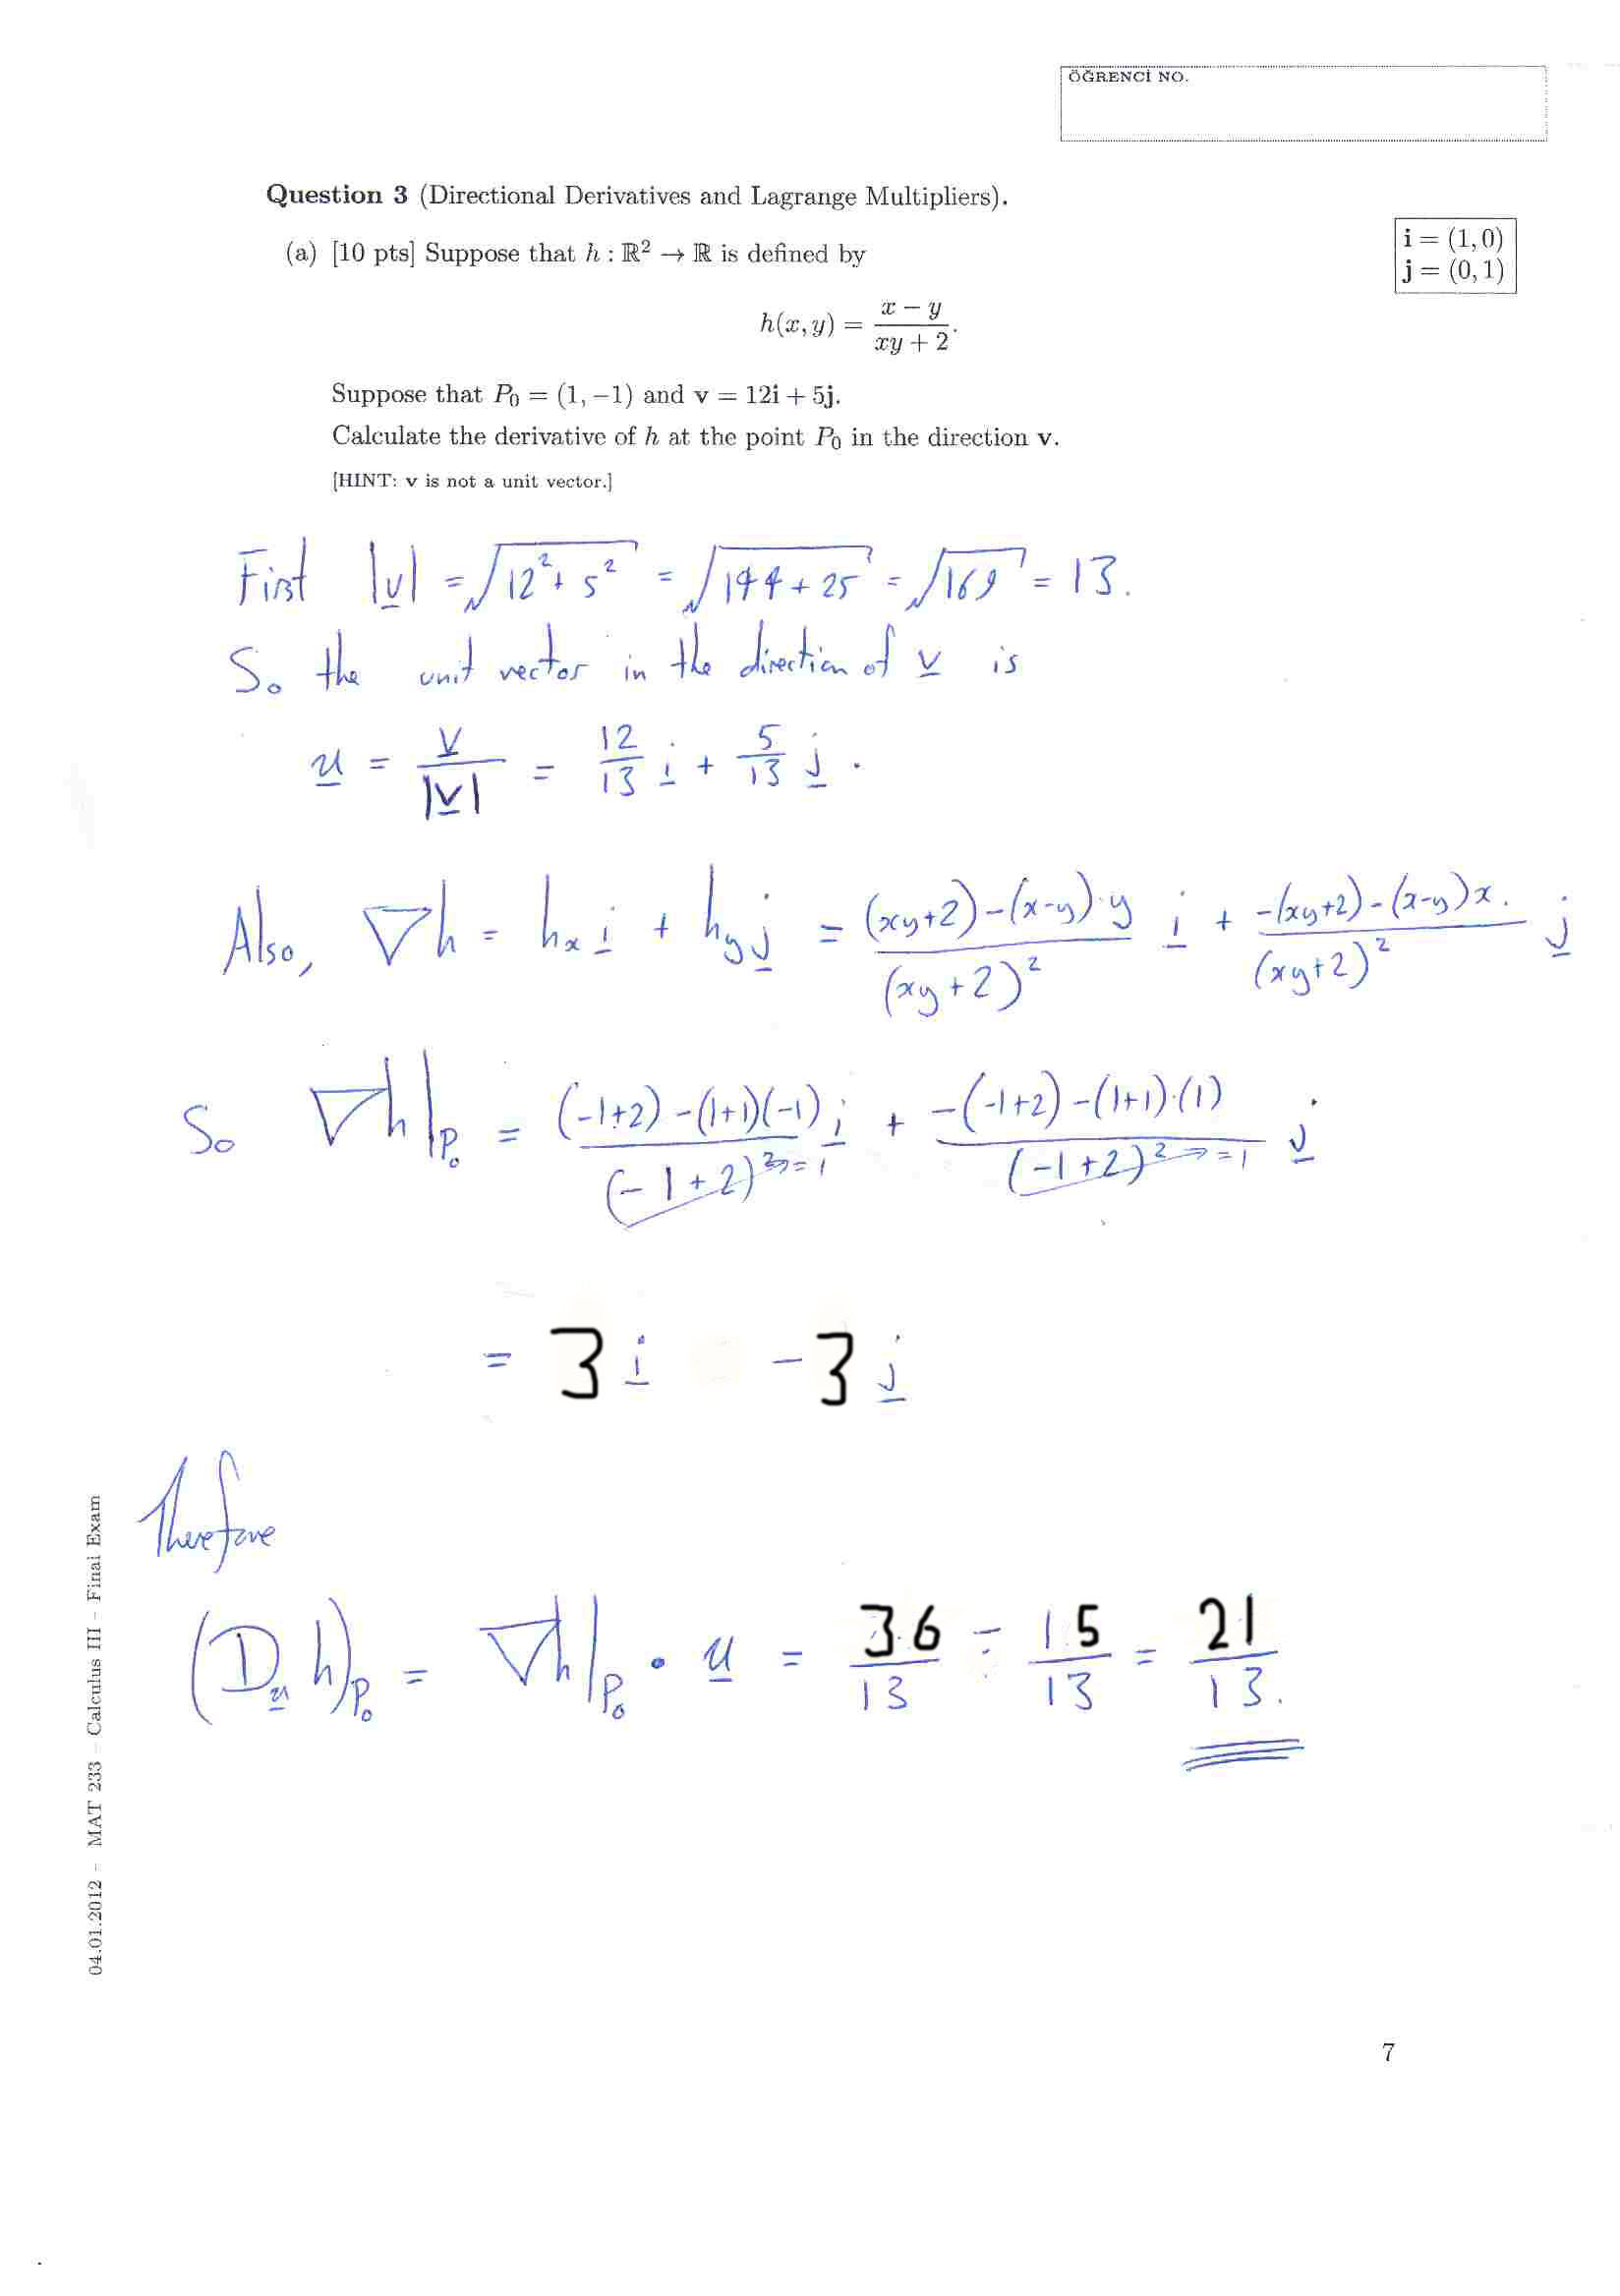 ÖĞRENCİ NO.
Question 3 (Directional Derivatives and Lagrange Multipliers).
(a) [10 pts] Suppose that h : ℝ² → ℝ is defined by
i = (1, 0)
j = (0, 1)
h(x, y) = (x − y)/(xy + 2).
Suppose that P₀ = (1, −1) and v = 12i + 5j.
Calculate the derivative of h at the point P₀ in the direction v.
[HINT: v is not a unit vector.]
First |v| = √(12² + 5²) = √(144 + 25) = √169 = 13.
So the unit vector in the direction of v is
u = v/|v| = 12/13 i + 5/13 j.
Also, ∇h = hₓ i + h_y j = ((xy+2) − (x−y)·y)/(xy+2)² i + (−(xy+2) − (x−y)x.)/(xy+2)² j
So ∇h|P₀ = ((−1+2) − (1+1)(−1))/(−1+2)² → =1 i + (−(−1+2) − (1+1)·(1))/(−1+2)² → =1 j
= 3 i − 3 j
Therefore
(D_u h)P₀ = ∇h|P₀ • u = 36/13 − 15/13 = 21/13.
04.01.2012 – MAT 233 – Calculus III – Final Exam
7